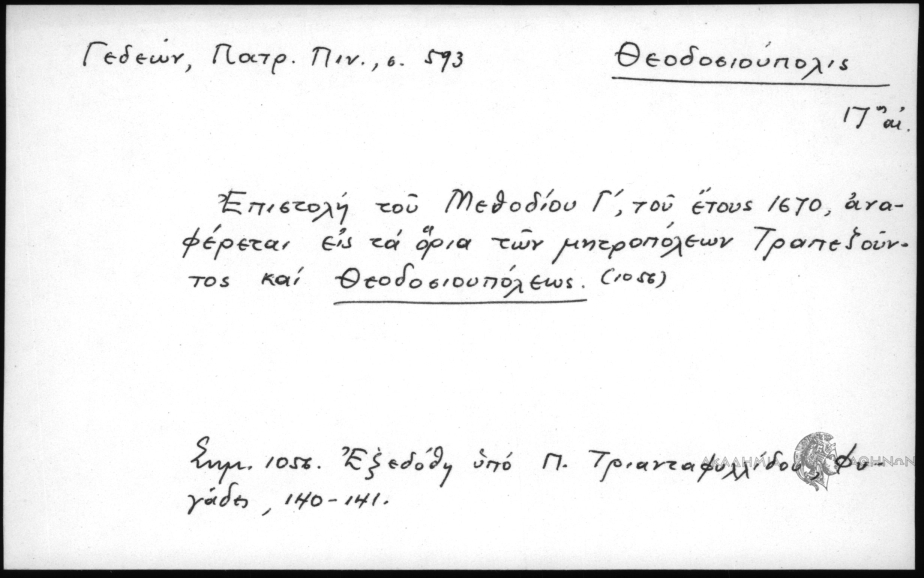 Γεδεών, Πατρ. Πιν., σ. 593
Θεοδοσιούπολις
17ος αἰ.
Ἐπιστολή τοῦ Μεθοδίου Γ', τοῦ ἔτους 1670, ἀνα-
φέρεται εἰς τά ὅρια τῶν μητροπόλεων Τραπεζοῦν-
τος καί Θεοδοσιουπόλεως. (1056)
Σημ. 1056. Ἐξεδόθη ὑπό Π. Τριανταφυλλίδου, Φυ-
γάδες, 140-141.
ΑΚΑΔΗΜΙΑ ΑΘΗΝΩΝ